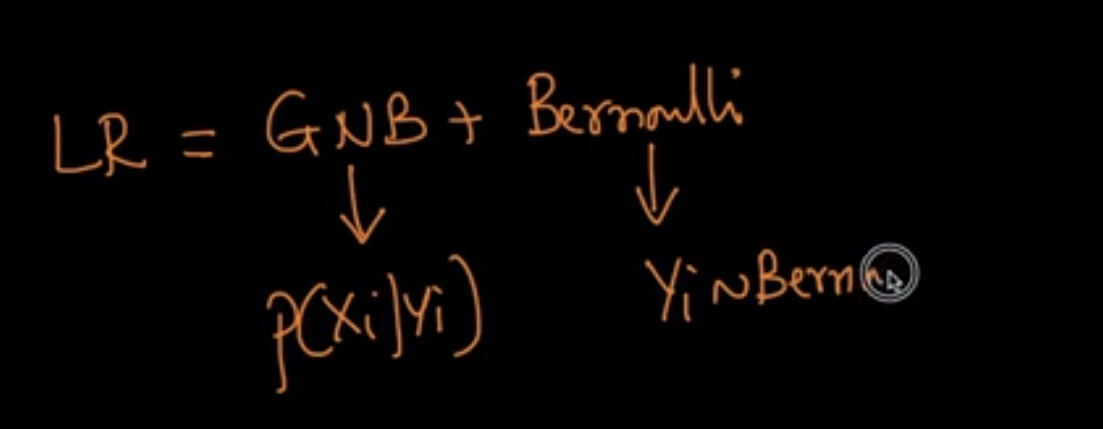 LR = GNB + Bernoulli
p(Xi|Yi) Yi ~ Bern